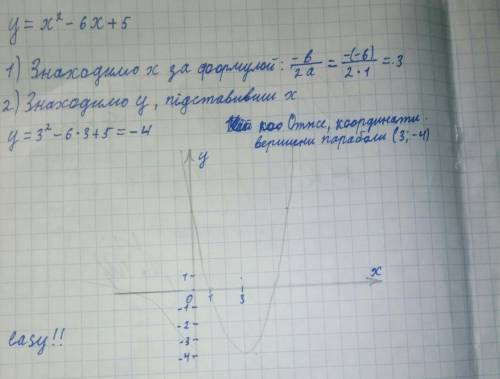 y = x² - 6x + 5
1) Знаходимо x за формулой: -b/2a = -(-6)/2·1 = 3
2) Знаходимо y, підставивши x
y = 3² - 6·3 + 5 = -4
Отже, координати
вершени параболи (3; -4)
y
x
1
0 1 3
-1
-2
-3
-4
easy!!